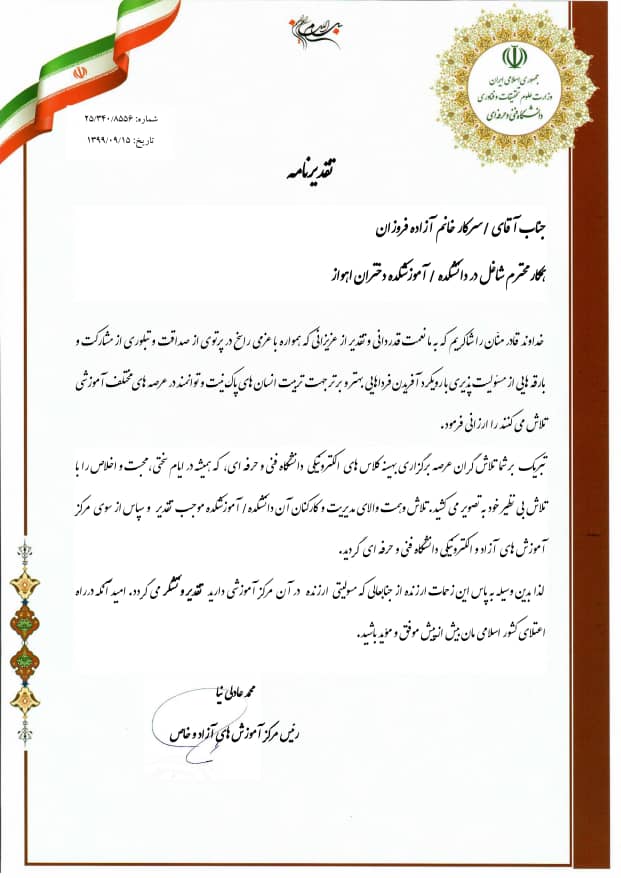 بسم الله الرحمن الرحیم
جمهوری اسلامی ایران
وزارت علوم، تحقیقات و فناوری
دانشگاه فنی و حرفه‌ای
شماره: ۲۵/۳۴۰/۸۵۵۶
تاریخ: ۱۳۹۹/۰۹/۱۵
تقدیرنامه
جناب آقای / سرکار خانم آزاده فروزان
همکار محترم شاغل در دانشکده / آموزشکده دختران اهواز
خداوند قادر منّان را شاکریم که به ما نعمت قدردانی و تقدیر از عزیزانی که همواره با عزمی راسخ در پرتوی از صداقت و تبلوری از مشارکت و
بارقه هایی از مسئولیت پذیری با رویکرد آفریدن فرداهایی بهتر و برتر جهت تربیت انسان های پاک نیت و توانمند در عرصه های مختلف آموزشی
تلاش می کنند را ارزانی فرمود.
تبریک بر شما تلاش گران عرصه برگزاری بهینه کلاس های الکترونیکی دانشگاه فنی و حرفه ای، که همیشه در ایام سختی، محبت و اخلاص را با
تلاش بی نظیر خود به تصویر می کشید. تلاش و همت والای مدیریت و کارکنان آن دانشکده/ آموزشکده موجب تقدیر و سپاس از سوی مرکز
آموزش های آزاد و الکترونیکی دانشگاه فنی و حرفه ای گردید.
لذا بدین وسیله به پاس این زحمات ارزنده از جنابعالی که مسولیتی ارزنده در آن مرکز آموزشی دارید تقدیر و تشکر می گردد. امید آنکه در راه
اعتلای کشور اسلامی مان بیش از پیش موفق و مؤید باشید.
محمد عادلی نیا
رئیس مرکز آموزش های آزاد و خاص